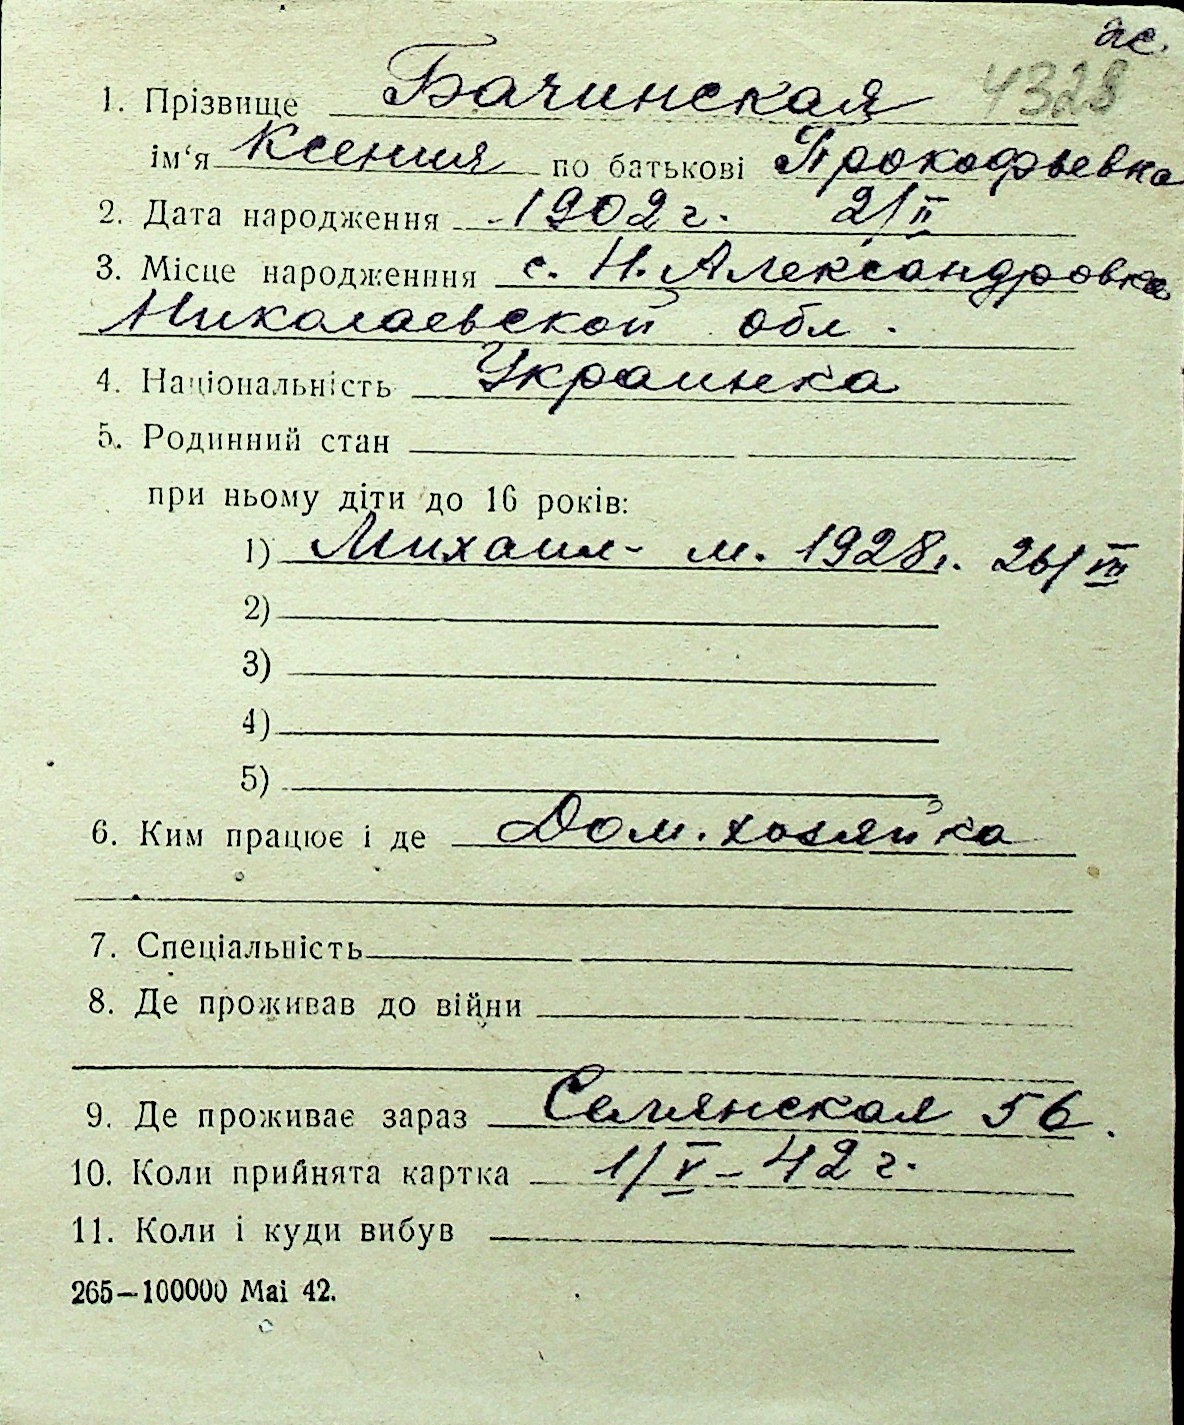 ж.
4328
1. Прізвище Бачинская
ім‘я Ксения по батькові Прокофьевка
2. Дата народження 1902 г. 2/II
3. Місце народженння с. Н. Александровка
Николаевской обл.
4. Національність Украинка
5. Родинний стан
при ньому діти до 16 років:
1) Михаил - м. 1928 г. 26/III
2)
3)
4)
5)
6. Ким працює і де Дом. хозяйка
7. Спеціальність
8. Де проживав до війни
9. Де проживає зараз 56.
10. Коли прийнята картка 1/V - 42 г.
11. Коли і куди вибув
265—100000 Mai 42.